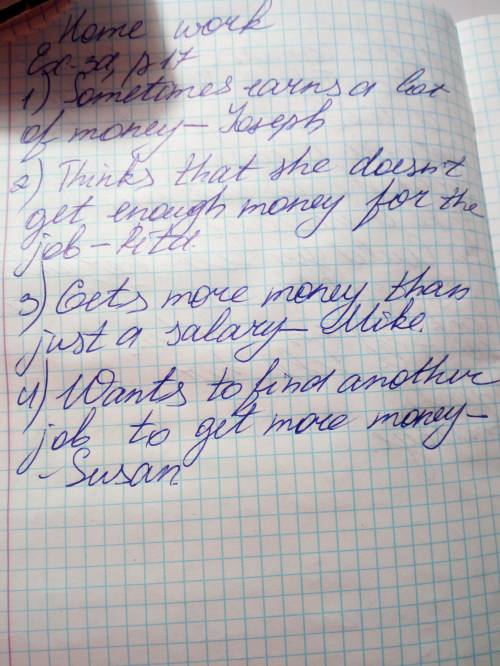 Home work
Ex. 3a, p 17
1) Sometimes earns a lot
of money – Joseph
2) Thinks that she doesn't
get enough money for the
job – Rita.
3) Gets more money than
just a salary – Mike.
4) Wants to find another
job to get more money –
- Susan.